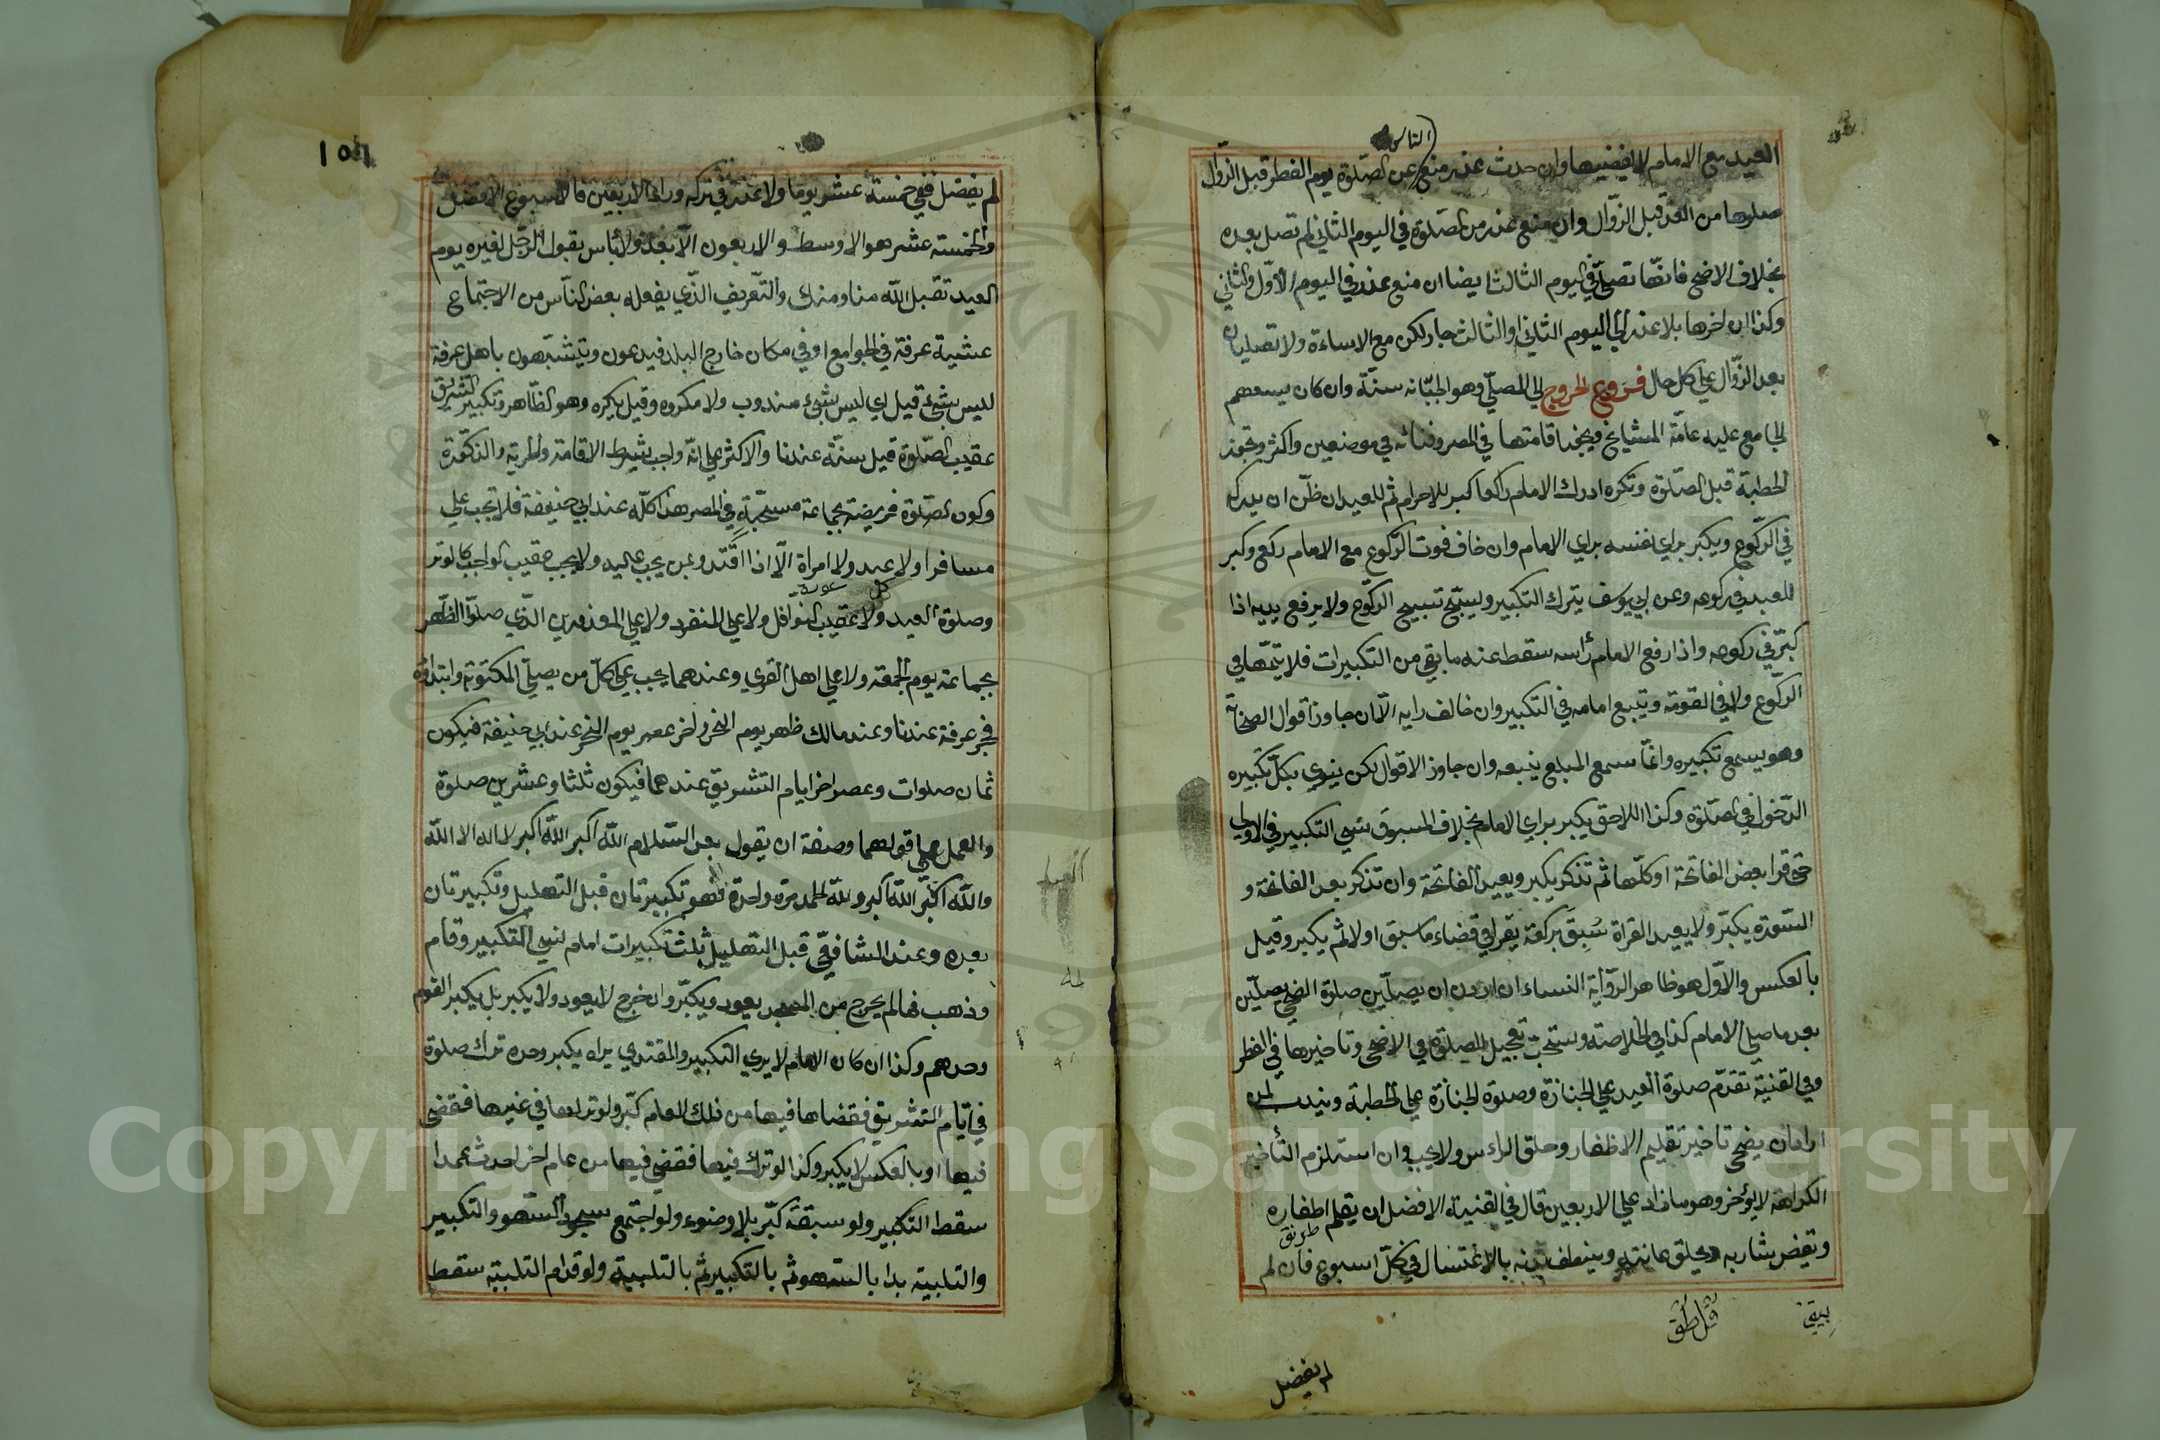 الناس
العيد مع الامام لا يقضيها وان حدث عذر منع عن الصّلوة يوم الفطر قبل الزّوال
صلوها من الغد قبل الزّوال وان منع عذر من الصّلوة في اليوم الثاني لم تصل بعده
بخلاف الاضحى فانّها تصلّى في اليوم الثالث ايضا ان منع عذر في اليوم الاوّل والثاني
وكذا ان اخرها بلا عذر الى اليوم الثاني او الثالث جاز لكن مع الاساءة ولا تصليان
بعد الزّوال على كل حال فروع الخروج الى المصلّى وهو الجبّانه سنّة وان كان يسعهم
الجامع عليه عامّة المشايخ ويجوز اقامتها في المصر وفنائه في موضعين واكثر وتجوز
الخطبة قبل الصّلوة وتكره ادرك الامام راكعا كبر للاحرام ثم للعيد ان ظنّ ان يدركه
في الرّكوع ويكبر براي نفسه براي الامام وان خاف فوت الرّكوع مع الامام ركع وكبر
للعيد في ركوعه وعن ابي يوسف يترك التكبير ويسبّح تسبيح الركوع ولا يرفع يديه اذا
كبّر في ركوعه واذا رفع الامام رأسه سقط عنه ما بقي من التكبيرات فلا يتمّها في
الركوع ولا في القومة ويتبع امامه في التكبير وان خالف رايه الاّ ان جاوز اقوال الصحابة
وهو يسمع تكبيره وامّا سمع المبلغ يتبعه وان جاوز الاقوال لكن ينوي بكلّ تكبيره
الدّخول في الصّلوة وكذا اللاحق يكبر براي الامام بخلاف المسبوق نسي التكبير في الاولى
حتى قرا بعض الفاتحة او كلّها ثم تذكر يكبر ويعيد الفاتحة وان تذكر بعد الفاتحة و
السّورة يكبّر ولا يعيد القراة سُبِقَ بركعة يقرا في قضاء ما سبق اولا ثم يكبر وقيل
بالعكس والاوّل هو ظاهر الرّواية النساء ان اردن ان يصلّين صلوة الضحى يصلّين
بعد ما صلى الامام كذا في الخلاصة ويستحبّ تعجيل الصلوة في الاضحى وتاخيرها في الفطر
وفي القنية تقدّم صلوة العيد على الجنازة وصلوة الجنازة على الخطبة ويندب لمن
اراد ان يضحّي تاخير تقليم الاظفار وحلق الراس ولا يجب وان استلزم التأخير
الكراهة لا يؤخر وهو ما زاد على الاربعين قال في القنية الافضل ان يقلم اظفاره
ويقص شاربه ويحلق عانته وينظف بدنه بالاغتسال في كلّ اسبوع فان لم
لم يفضل
لم يفضل ففي خمسة عشر يوما ولا عذر في تركه وراء الاربعين فالاسبوع الافضل
والخمسة عشر هو الاوسط والاربعون الابعد ولا بأس بقول الرّجل لغيره يوم
العيد تقبل الله منا ومنك والتّعريف الذّي يفعله بعض النّاس من الاجتماع
عشية عرفة في الجوامع او في مكان خارج البلد فيدعون ويتشبّهون باهل عرفة
ليس بشيء قيل اي ليس بشيء مندوب ولا مكروه وقيل يكره وهو الظّاهر وتكبير التشريق
عقيب الصّلوة قيل سنّة عندنا والاكثر على انّه واجب بشرط الاقامة والحرية والذكورة
وكون الصّلوة فريضة بجماعة مستحبّة في المصر هذا كلّه عند ابي حنيفة فلا تجب على
مسافر ولا عبد ولا امراة الاّ اذا اقتدوا بمن يجب عليه ولا يجب عقيب الواجب كالوتر
وصلوة العيد ولا عقيب النوافل ولا على المنفرد ولا على المعذورين الذّي صلّوا الظهر
بجماعة يوم الجمعة ولا على اهل القرى وعندهما يجب على كلّ من يصلّي المكتوبة وابتداؤه
فجر عرفة عندنا وعند مالك ظهر يوم النحر واخره عصر يوم النحر عند ابي حنيفة فيكون
ثمان صلوات وعصر اخر ايام التشريق عندهما فيكون ثلثا وعشرين صلوة
والعمل على قولهما وصفة ان يقول بعد السّلام الله اكبر الله اكبر لا اله الا الله
والله اكبر الله اكبر ولله الحمد مرة واحدة فهو تكبيرتان قبل التهليل وتكبيرتان
بعده وعند الشافعيّ قبل التهليل ثلث تكبيرات امام نسي التكبير وقام
وذهب فما لم يخرج من المسجد يعود ويكبّر وان خرج لا يعود ولا يكبر بل يكبر القوم
وحدهم وكذا ان كان الامام لا يري التكبير والمقتدي يراه يكبر وحده ترك صلوة
في ايّام التشريق فقضاها فيها من ذلك العام كبّر ولو تركها في غيرها فقضى
فيها او بالعكس لا يكبر وكذا لو ترك فيها فقضى فيها من عام اخر احدث عمدا
سقط التكبير ولو سبقه كبّر بلا وضوء ولو اجتمع سجود السّهو والتكبير
والتلبية بدا بالسّهو ثم بالتكبير ثم بالتلبية ولو قدم التلبية سقط
Copyright © King Saud University